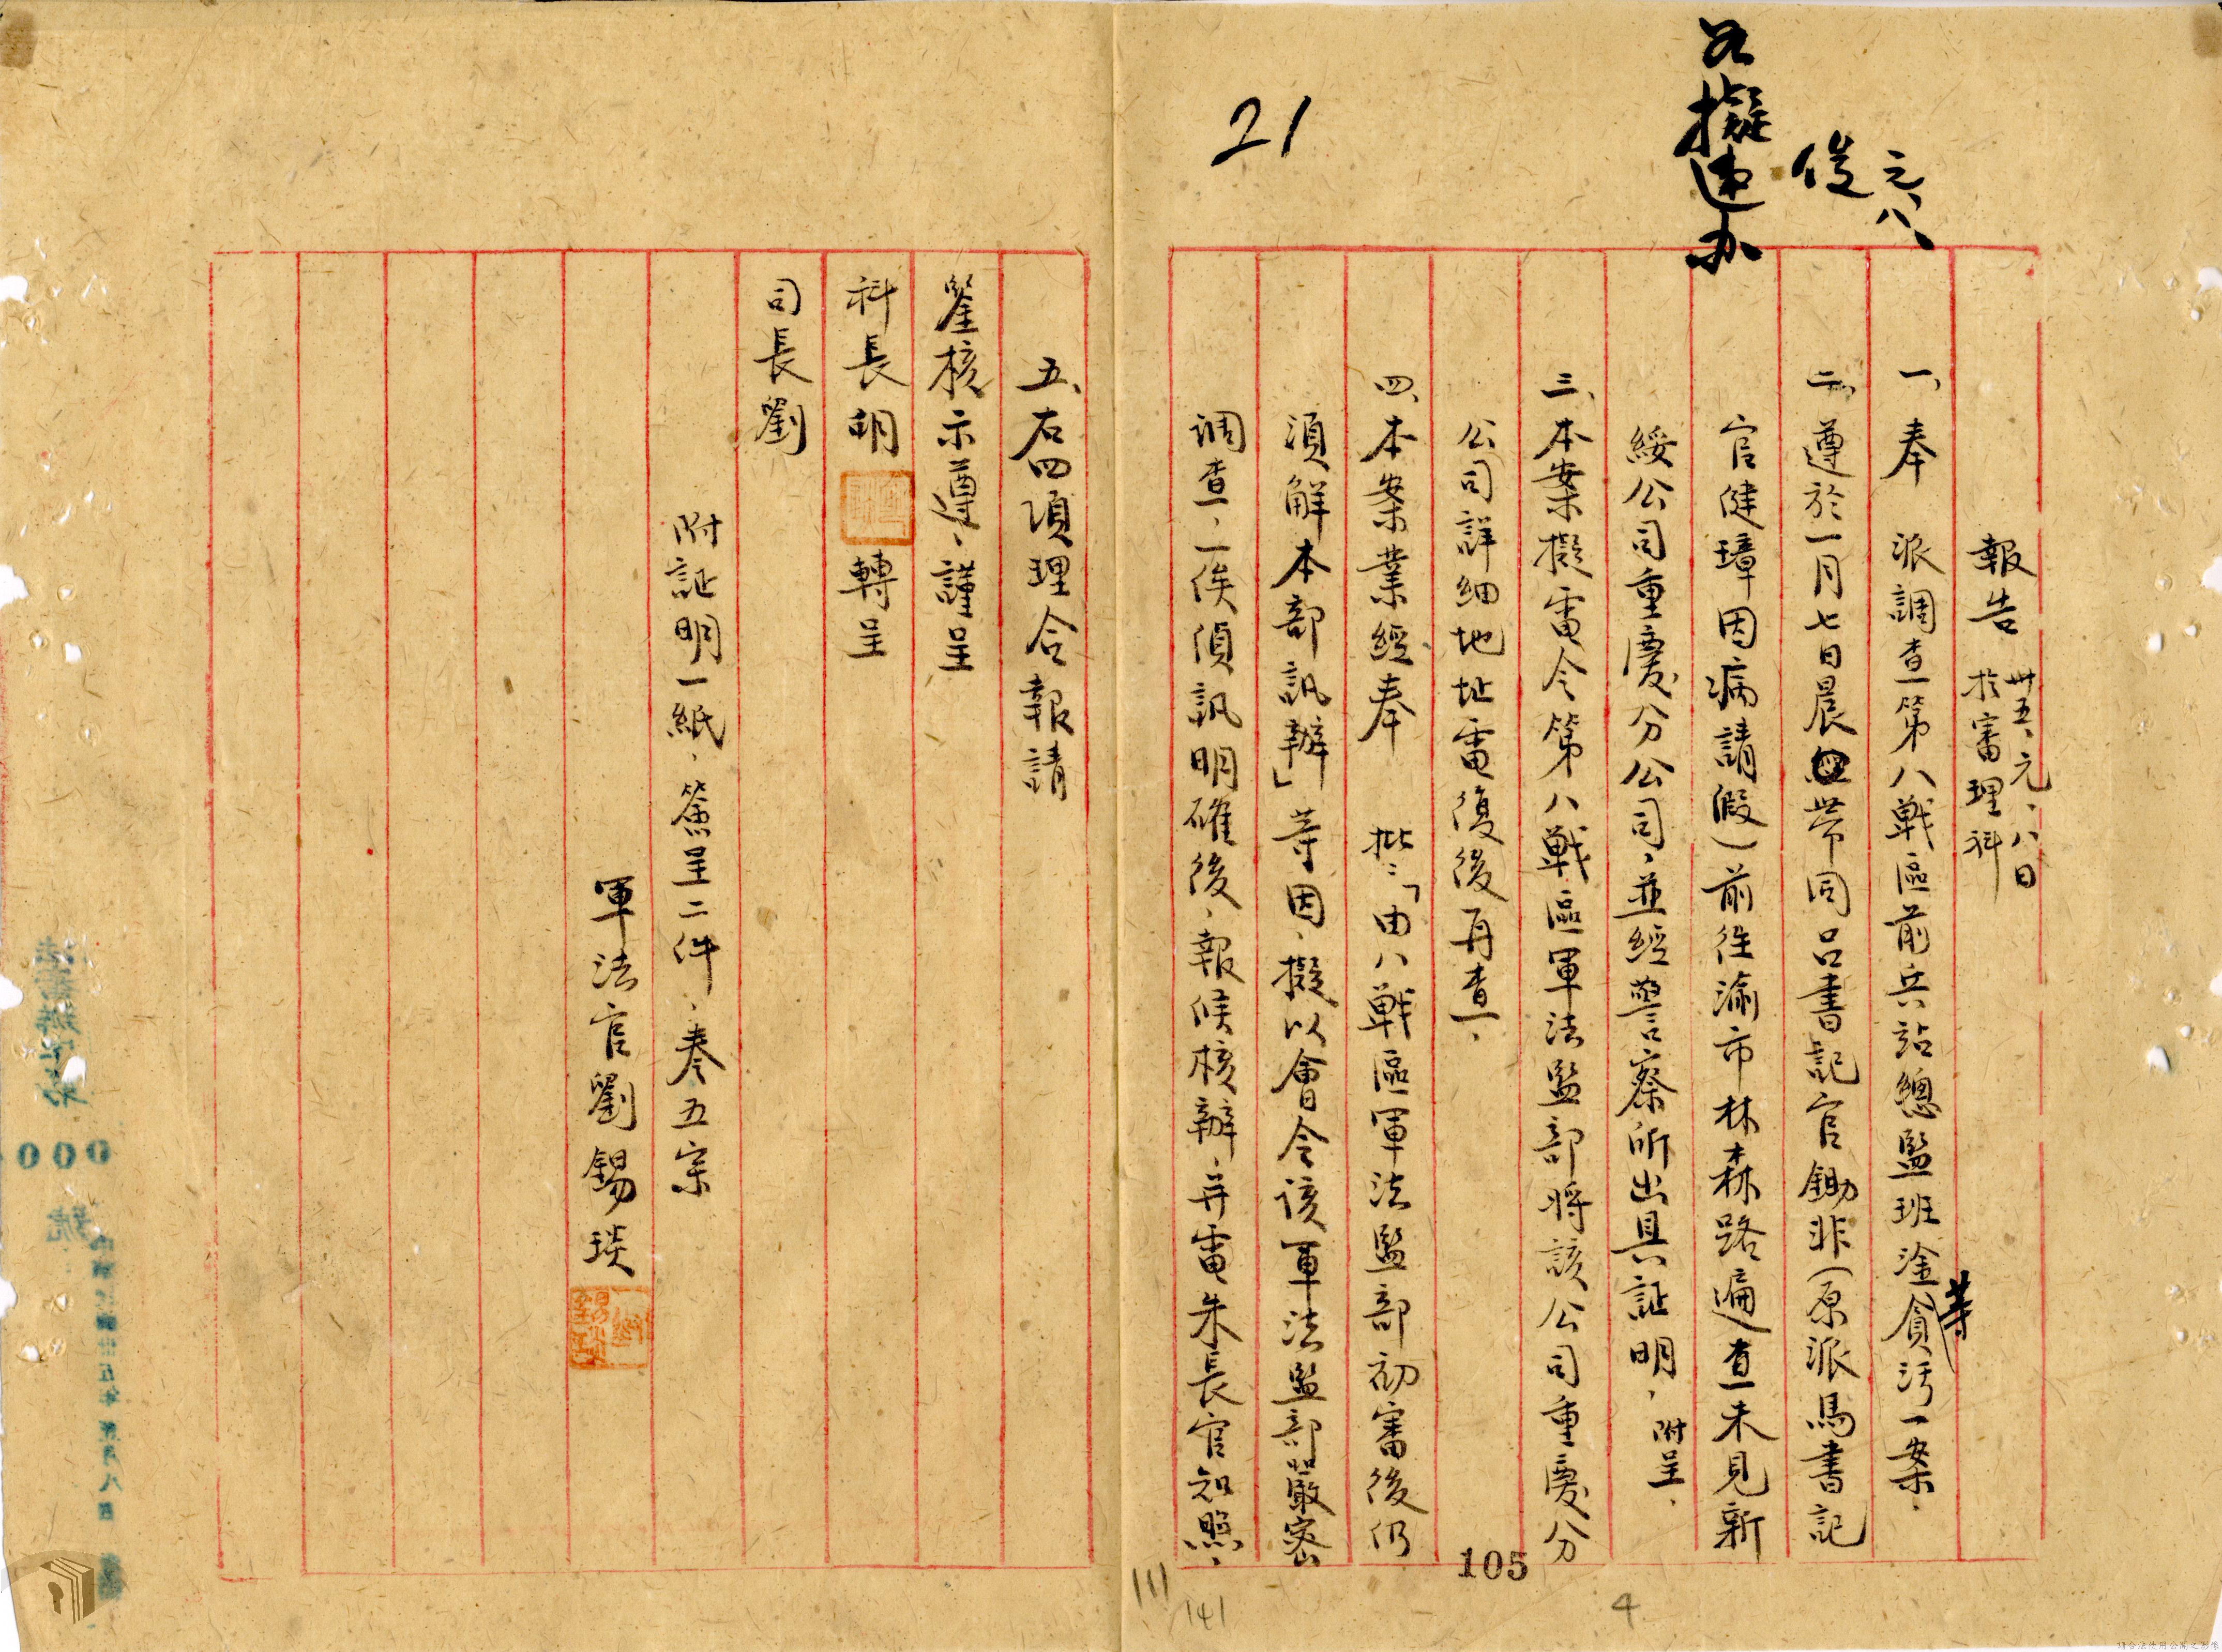 如擬速办
俊
元、八、
21
報告
卅五、元、八日
於審理科
一、奉 派調查第八戰區前兵站總監班淦等貪污一案、
二、遵於一月七日晨帶同呂書記官鋤非(原派馬書記
官健璋因病請假)前往渝市林森路遍查未見新
綏公司重慶分公司、並經警察所出具証明、附呈、
三、本案擬電令第八戰區軍法監部將該公司重慶分
公司詳細地址電復後再查、
四、本案業經奉 批:「由八戰區軍法監部初審後仍
須解本部訊辦」等因、擬以會令該軍法監部嚴密
調查、一俟偵訊明確後、報候核辦、并電朱長官知照、
五、右四項理合報請
鑒核示遵、謹呈
科長胡 轉呈
司長劉
附証明一紙、簽呈二件、卷五宗
軍法官劉錫琰
105
4
111
141
000
號